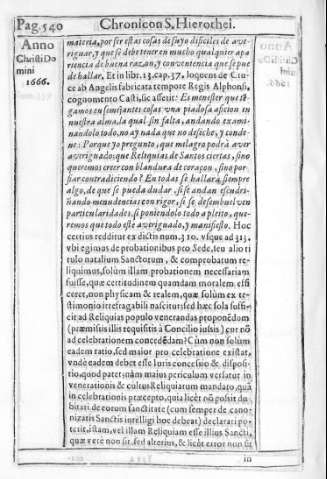 Pag. 540
Chronicon S. Hierothei.
Anno
Christi Do
mini
1666.
materia, por ser estas cosas de suyo dificiles de ave-
riguar, y que se debe tener en mucho qualquier apa-
riencia de buena razon, y conveniencia que se pue
de hallar. Et in libr. 13. cap. 37. loquens de Cru-
ce ab Angelis fabricata tempore Regis Alphonsi,
cognomento Casti, sic asserit: Es menester que té-
gamos en semejantes cosas vna piadosa aficion en
nuestra alma, la qual sin falta, andando exami-
nandolo todo, no ay nada que no deseche, y conde
ne: Porque yo pregunto, que milagro podrà aver
averiguado; que Reliquias de Santos ciertas, sino
queremos creer con blandura de coraçon, sino por-
fiar contradiciendo? En todas se hallarà siempre
algo, de que se pueda dudar, si se andan escudri-
ñando menudencias con rigor, si se desembuelven
particularidades, si poniendolo todo a pleito, que-
remos que todo esté averiguado, y manifiesto. Hoc
certius redditur ex dictis num. 310. vsque ad 313,
vbi egimus de probationibus pro Sede, seu alio ti
tulo natalium Sanctorum, & comprobatum re-
liquimus, solùm illam probationem necessariam
fuisse, quæ certitudinem quamdam moralem effi
ceret, non physicam & realem, quæ solùm ex te-
stimonio irrefragabili nascitur; sed hæc sola suffi-
cit ad Reliquias populo venerandas proponẽdum
(præmissis illis requisitis à Concilio iussis) cur nõ
ad celebrationem concedẽdam? Cùm non solùm
eadem ratio, sed maior pro celebratione existat,
vnde eadem debet esse Iuris concessio & disposi-
tio, quod patet; nàm maius periculum versatur in
veneratione & cultu Reliquiarum mandato, quã
in celebrationis præcepto, quia licèt nõ possit du
bitari de eorum sanctitate (cum semper de cano-
nizatis Sanctis intelligi hoc debeat) declarati po-
tetit, istam, vel illam Reliquiam esse illius Sancti,
quæ verè non sit, sed alterius, & licèt error non sit
in